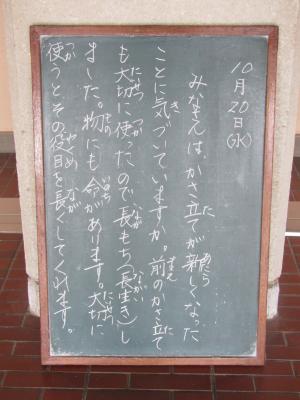 10月20日(水)
みなさんは、かさ立てが新しくなった
ことに気づいていますか。前のかさ立て
も大切に使ったので長もち(長生き)し
ました。物にも命があります。大切に
使うとその役目を長くしてくれます。